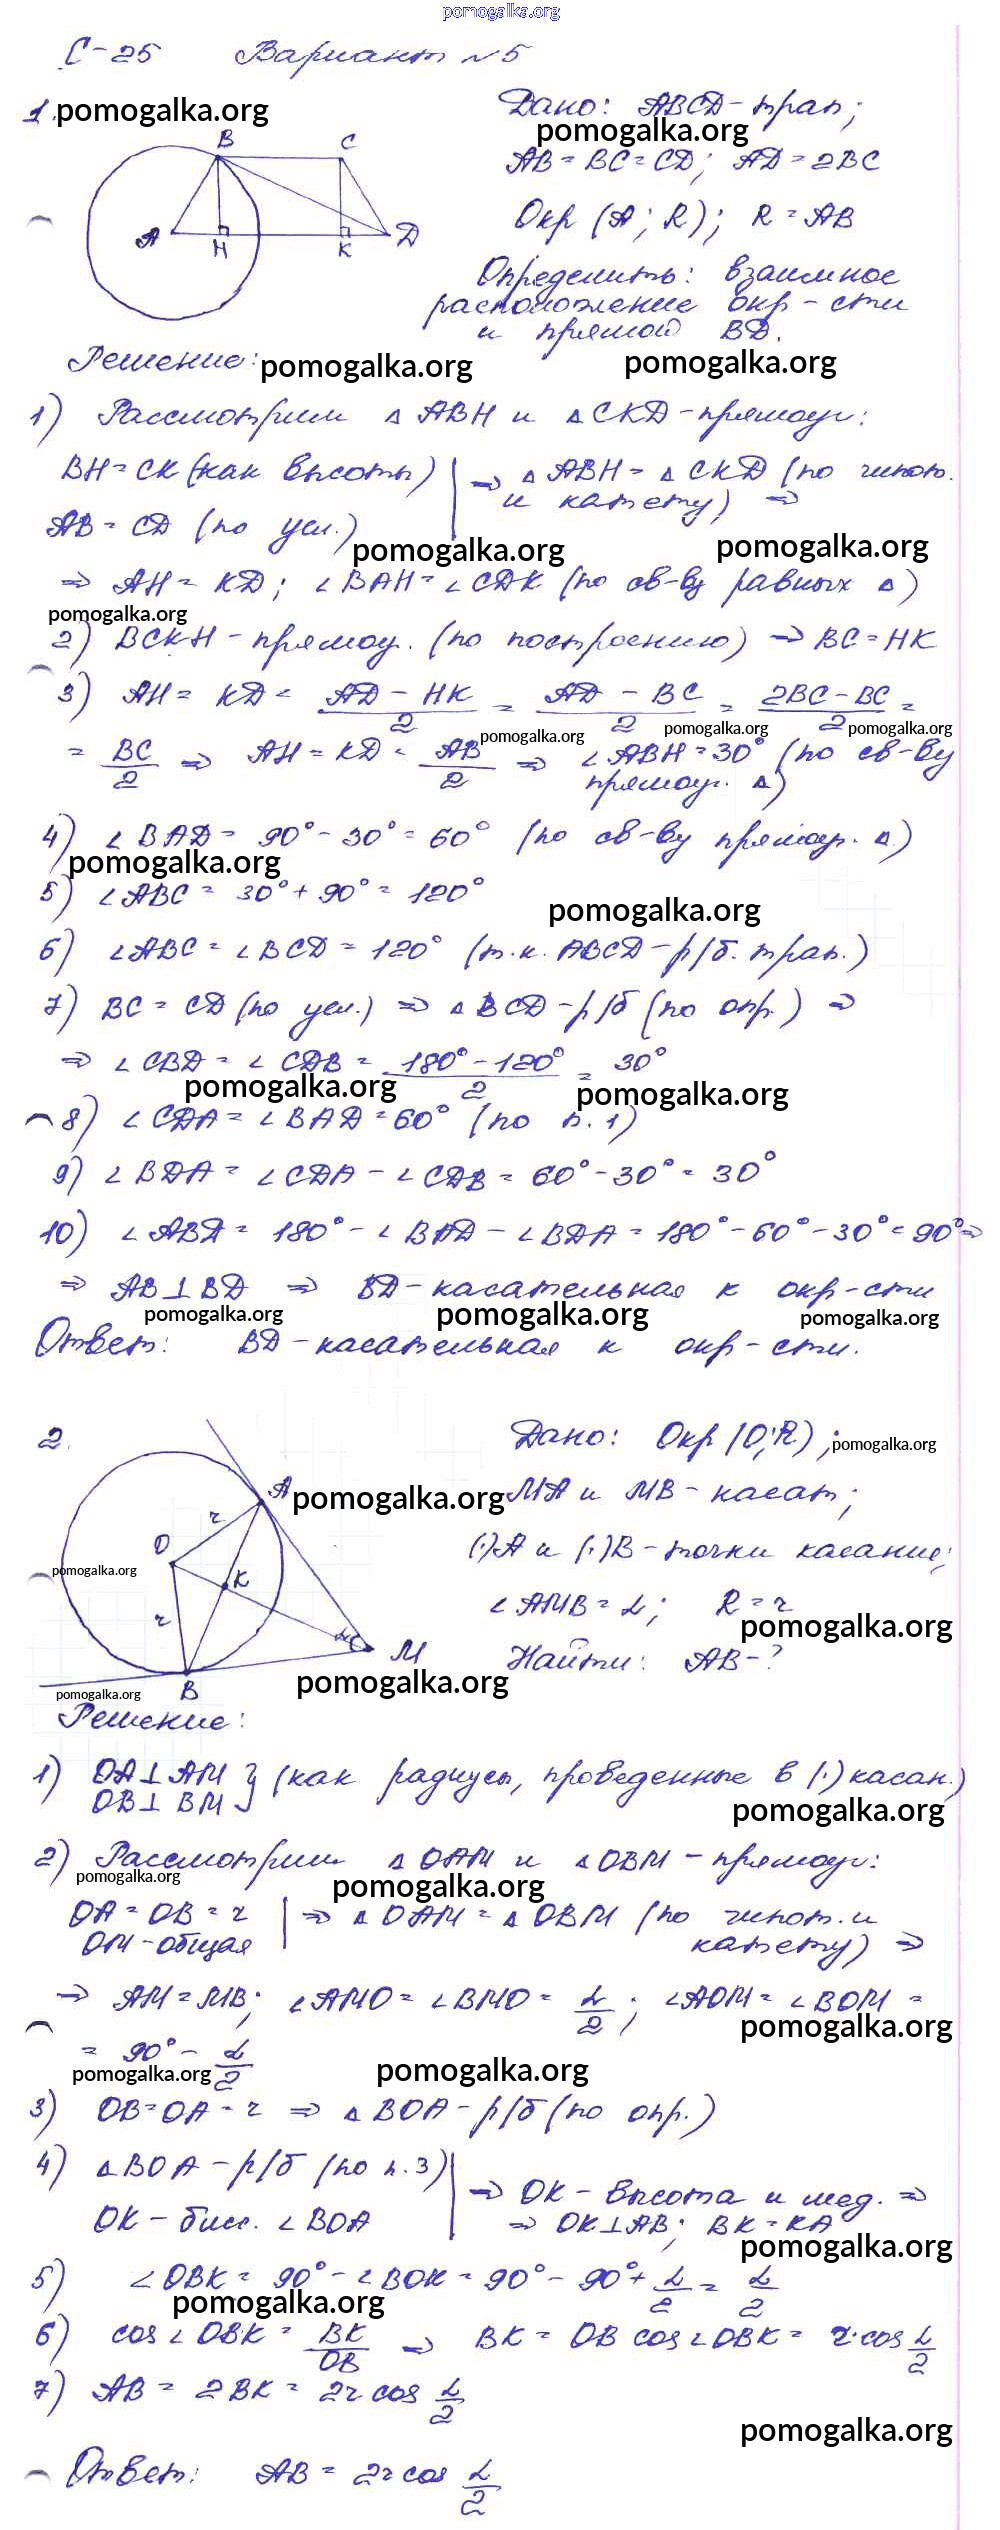 pomogalka.org
С-25 Вариант №5
1. pomogalka.org
B C
A H K D
Дано: ABCD-трап;
pomogalka.org
AB = BC = CD; AD = 2BC
Окр (A; R); R = AB
Определить: взаимное
расположение окр-сти
и прямой BD.
Решение: pomogalka.org pomogalka.org
1) Рассмотрим △ ABH и △ CKD-прямоуг:
BH = CK (как высоты) | ⇒ △ ABH = △ CKD (по гипот.
и катету) ⇒
AB = CD (по усл.)
pomogalka.org pomogalka.org
⇒ AH = KD; ∠BAH = ∠CDK (по св-ву равных △)
pomogalka.org
2) BCKH - прямоуг. (по построению) ⇒ BC = HK
3) AH = KD = (AD - HK)/2 = (AD - BC)/2 = (2BC - BC)/2 =
pomogalka.org pomogalka.org pomogalka.org
= BC/2 ⇒ AH = KD = AB/2 ⇒ ∠ABH = 30° (по св-ву
прямоуг. △)
4) ∠BAD = 90° - 30° = 60° (по св-ву прямоуг. △)
pomogalka.org
5) ∠ABC = 30° + 90° = 120°
pomogalka.org
6) ∠ABC = ∠BCD = 120° (т.к. ABCD-р/б. трап.)
7) BC = CD (по усл.) ⇒ △ BCD-р/б (по опр.) ⇒
⇒ ∠CBD = ∠CDB = (180° - 120°)/2 = 30°
pomogalka.org pomogalka.org
8) ∠CDA = ∠BAD = 60° (по п. 1)
9) ∠BDA = ∠CDA - ∠CDB = 60° - 30° = 30°
10) ∠ABD = 180° - ∠BAD - ∠BDA = 180° - 60° - 30° = 90° ⇒
⇒ AB ⊥ BD ⇒ BD-касательная к окр-сти
pomogalka.org pomogalka.org pomogalka.org
Ответ: BD-касательная к окр-сти.
2.
A
O r K
r α M
B
Дано: Окр (O; R); pomogalka.org
pomogalka.org MA и MB - касат;
(·)A и (·)B-точки касания;
pomogalka.org
∠AMB = α; R = r
pomogalka.org
Найти: AB-?
pomogalka.org
pomogalka.org
Решение:
1) OA ⊥ AM
OB ⊥ BM } (как радиусы, проведенные в (·) касан.)
pomogalka.org
2) Рассмотрим △ OAM и △ OBM - прямоуг:
pomogalka.org pomogalka.org
OA = OB = r | ⇒ △ OAM = △ OBM (по гипот. и
OM-общая катету) ⇒
⇒ AM = MB; ∠AMO = ∠BMO = α/2; ∠AOM = ∠BOM =
pomogalka.org
= 90° - α/2
pomogalka.org pomogalka.org
3) OB = OA = r ⇒ △ BOA - р/б (по опр.)
4) △BOA - р/б (по п. 3) | ⇒ OK - высота и мед. ⇒
OK - бисс. ∠BOA ⇒ OK ⊥ AB; BK = KA
pomogalka.org
5) ∠OBK = 90° - ∠BOK = 90° - 90° + α/2 = α/2
pomogalka.org
6) cos ∠OBK = BK/OB ⇒ BK = OB cos ∠OBK = r·cos α/2
7) AB = 2BK = 2r cos α/2
pomogalka.org
Ответ: AB = 2r cos α/2